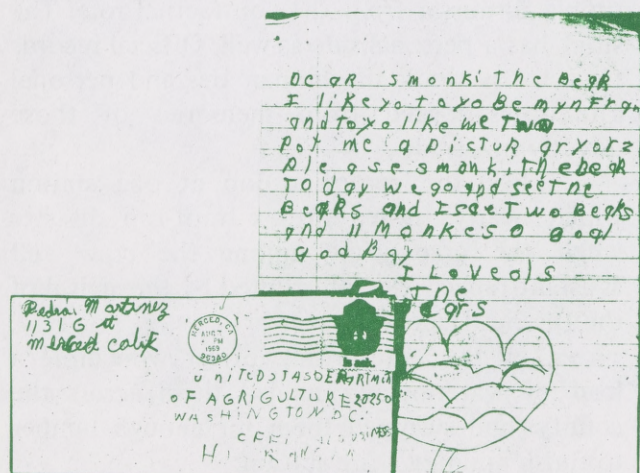 DeaR smonki The BeaR
I like yo to yo Be myn Fran
and to yo like me Two
Pot me a picTuR ar yorz
Please smonki the bear
Today we go and see the
BeaRs and I see Two Bears
and 11 Monkes 0 Goal
good Bay
I Love als
The
Ears
Pedra Martinez
1131 G st
merced calif
MERCED, CA
AUG
PM
1969
95340
uniTeDsTasDePArTiMen
oF AGRICULTURE 20250
WASHINGTON DC.